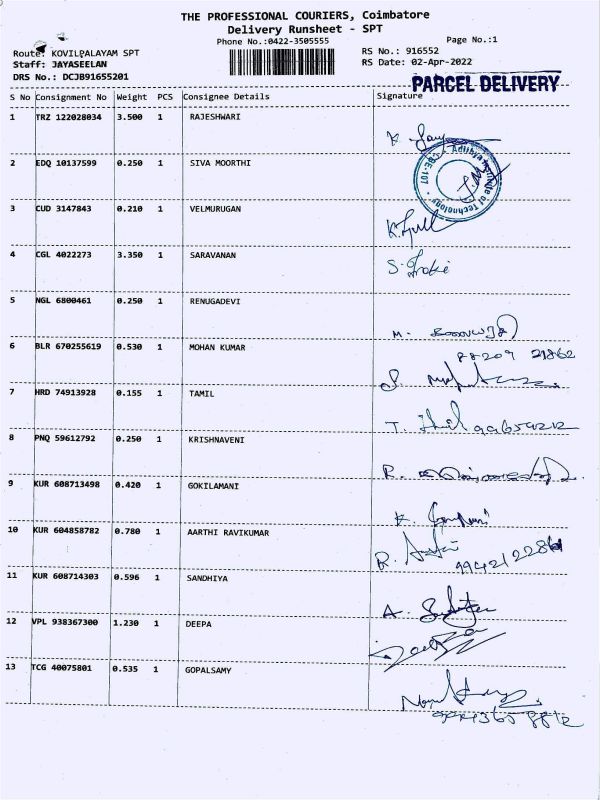 THE PROFESSIONAL COURIERS, Coimbatore
Delivery Runsheet - SPT
Phone No.:0422-3505555
Page No.:1
Route: KOVILPALAYAM SPT
RS No.: 916552
Staff: JAYASEELAN
RS Date: 02-Apr-2022
DRS No.: DCJB91655201
PARCEL DELIVERY
S No Consignment No Weight PCS Consignee Details Signature
1 TRZ 122028034 3.500 1 RAJESHWARI
2 EDQ 10137599 0.250 1 SIVA MOORTHI
Adithya Institute of Technology
CBE-107
3 CUD 3147843 0.210 1 VELMURUGAN
4 CGL 4022273 3.350 1 SARAVANAN
5 NGL 6800461 0.250 1 RENUGADEVI
6 BLR 670255619 0.530 1 MOHAN KUMAR
7 HRD 74913928 0.155 1 TAMIL
8 PNQ 59612792 0.250 1 KRISHNAVENI
9 KUR 608713498 0.420 1 GOKILAMANI
10 KUR 604858782 0.780 1 AARTHI RAVIKUMAR
11 KUR 608714303 0.596 1 SANDHIYA
12 VPL 938367300 1.230 1 DEEPA
13 TCG 40075801 0.535 1 GOPALSAMY